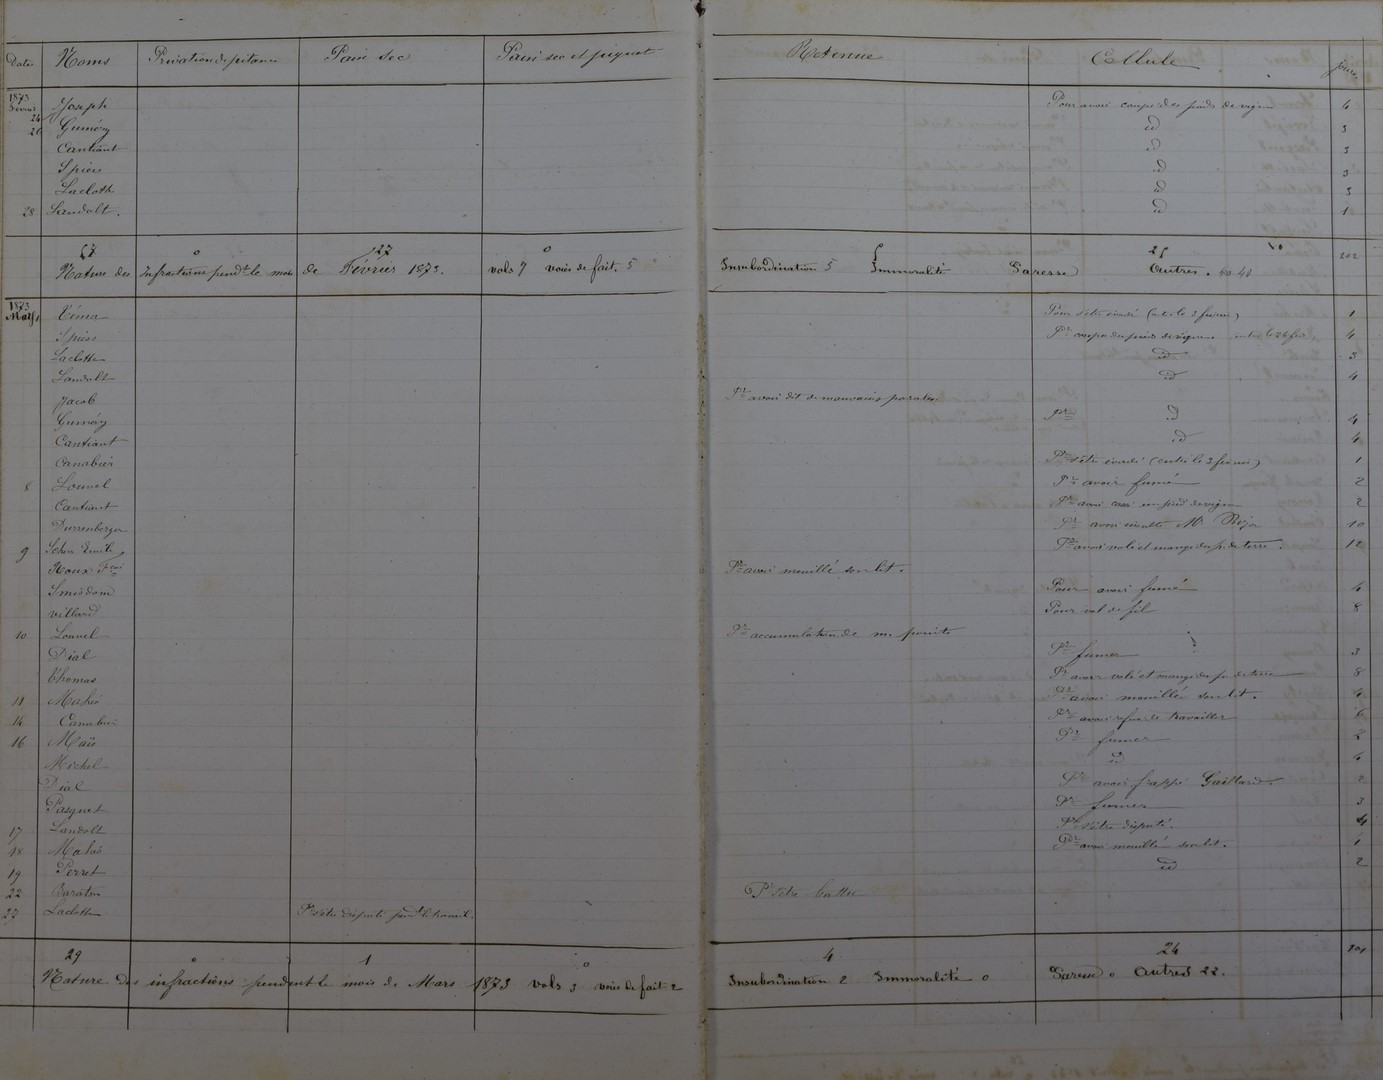 Dates Noms Privation de pitance Pain sec Pain sec et piquet Retenue Cellule jours
1873
Février
24 Joseph Pour avoir coupé des pieds de vigne 4
26 Guméry id 3
Cantiant id 3
Spiess id 3
Lacloth id 3
28 Landolt. id 1
0 127 0 25 202
Nature des infractions pendt le mois de Février 1873. vols 7 voies de fait. 5 Insubordination 5 Immoralité Paresse Autres. 40
1873
Mars 1 Pour s'être évadé (entré le 3 février) 1
Spiess Pr coupé des pieds de vigne entré le 26 fév. 4
Laclotte id 3
Landolt id 4
Jacob Pr avoir dit de mauvaises paroles.
Guméry Pr id 4
Cantiant id 4
Canabier Pr s'être évadé (entré le 3 février) 1
8 Louvel Pr avoir fumé 2
Cantiant Pr avoir cassé un pied de vigne 2
Durrenberger Pr avoir insulté Mr 10
9 Emile Pr avoir volé et mangé des p. de terre. 12
Roux Fcois Pr avoir mouillé son lit.
Smisdom Pour avoir fumé 4
Villard Pour vol de fil 8
10 Louvel Pr accumulation de m. points
Dial Pr fumer 3
Thomas Pr avoir volé et mangé des p. de terre 8
11 Mahé Pr avoir mouillé son lit. 4
14 Canabier Pr avoir refusé de travailler 6
16 Maïs Pr fumer 2
Michel id 4
Dial Pr avoir frappé Gaillard. 2
Pasquet Pr fumer 3
17 Landolt Pr s'être disputé. 4
18 Mahé Pr avoir mouillé son lit. 1
19 Perret id 2
22 Baraton Pr s'être battu
27 Laclotte Pr s'être disputé pendt le travail.
29 0 1 0 4 24 101
Nature des infractions pendent le mois de Mars 1873 vols 3 voies de fait 2 Insubordination 2 Immoralité 0 Paresse 0 Autres 22.